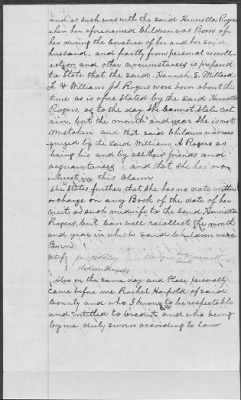 and as such was with the said Henrietta Rogers
when her aforenamed Children was Born of
her during the lifetime of her and her said
husband, and partly from personal recoll-
ection and other circumstances is prepared
to State that the said Hannah E Millard
F. & William J Rogers were born about the
time as is above Stated by the Said Henrietta
Rogers, as to the day she cannot State cert
ain, but the month and year She is not
Mistaken and that said Children was recog
nized by the Said William A Rogers as
being his and by all their friends and
acquaintances and that She has no
interest in this Claim
She States further that She has no date with
or charge on any Book of the date of her
visits as such midwife to the said Henrietta
Rogers, but can well recollect the month
and year in which said Children were
Born
Also on the same day and Place personally
came before me Rachel Harpold of said
County and who I know to be respectable
and entitled to credit and who being
by me duly sworn according to Law